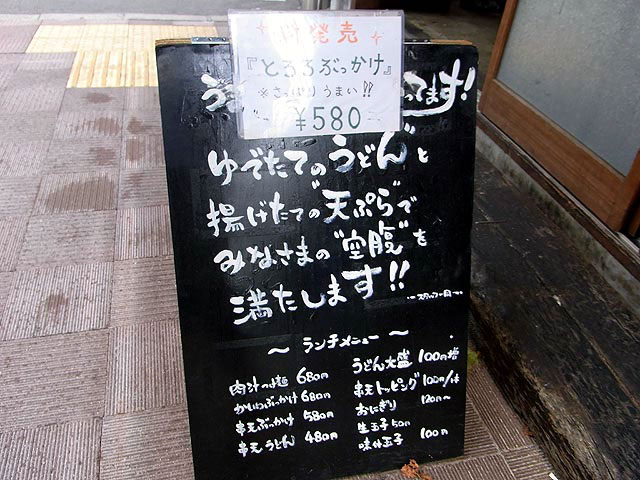 新発売
『とろろぶっかけ』
※さっぱりうまい!!
¥580
う ってます!
ゆでたての"うどん"と
揚げたての"天ぷら"で
みなさまの"空腹"を
満たします!!
〜スタッフ一同〜
〜 ランチメニュー 〜
肉汁つけ麺 680円
かしわぶっかけ 680円
串天ぶっかけ 580円
串天うどん 480円
うどん大盛 100円増
串天トッピング 100円/1本
おにぎり 120円〜
生玉子 50円
味付玉子 100円